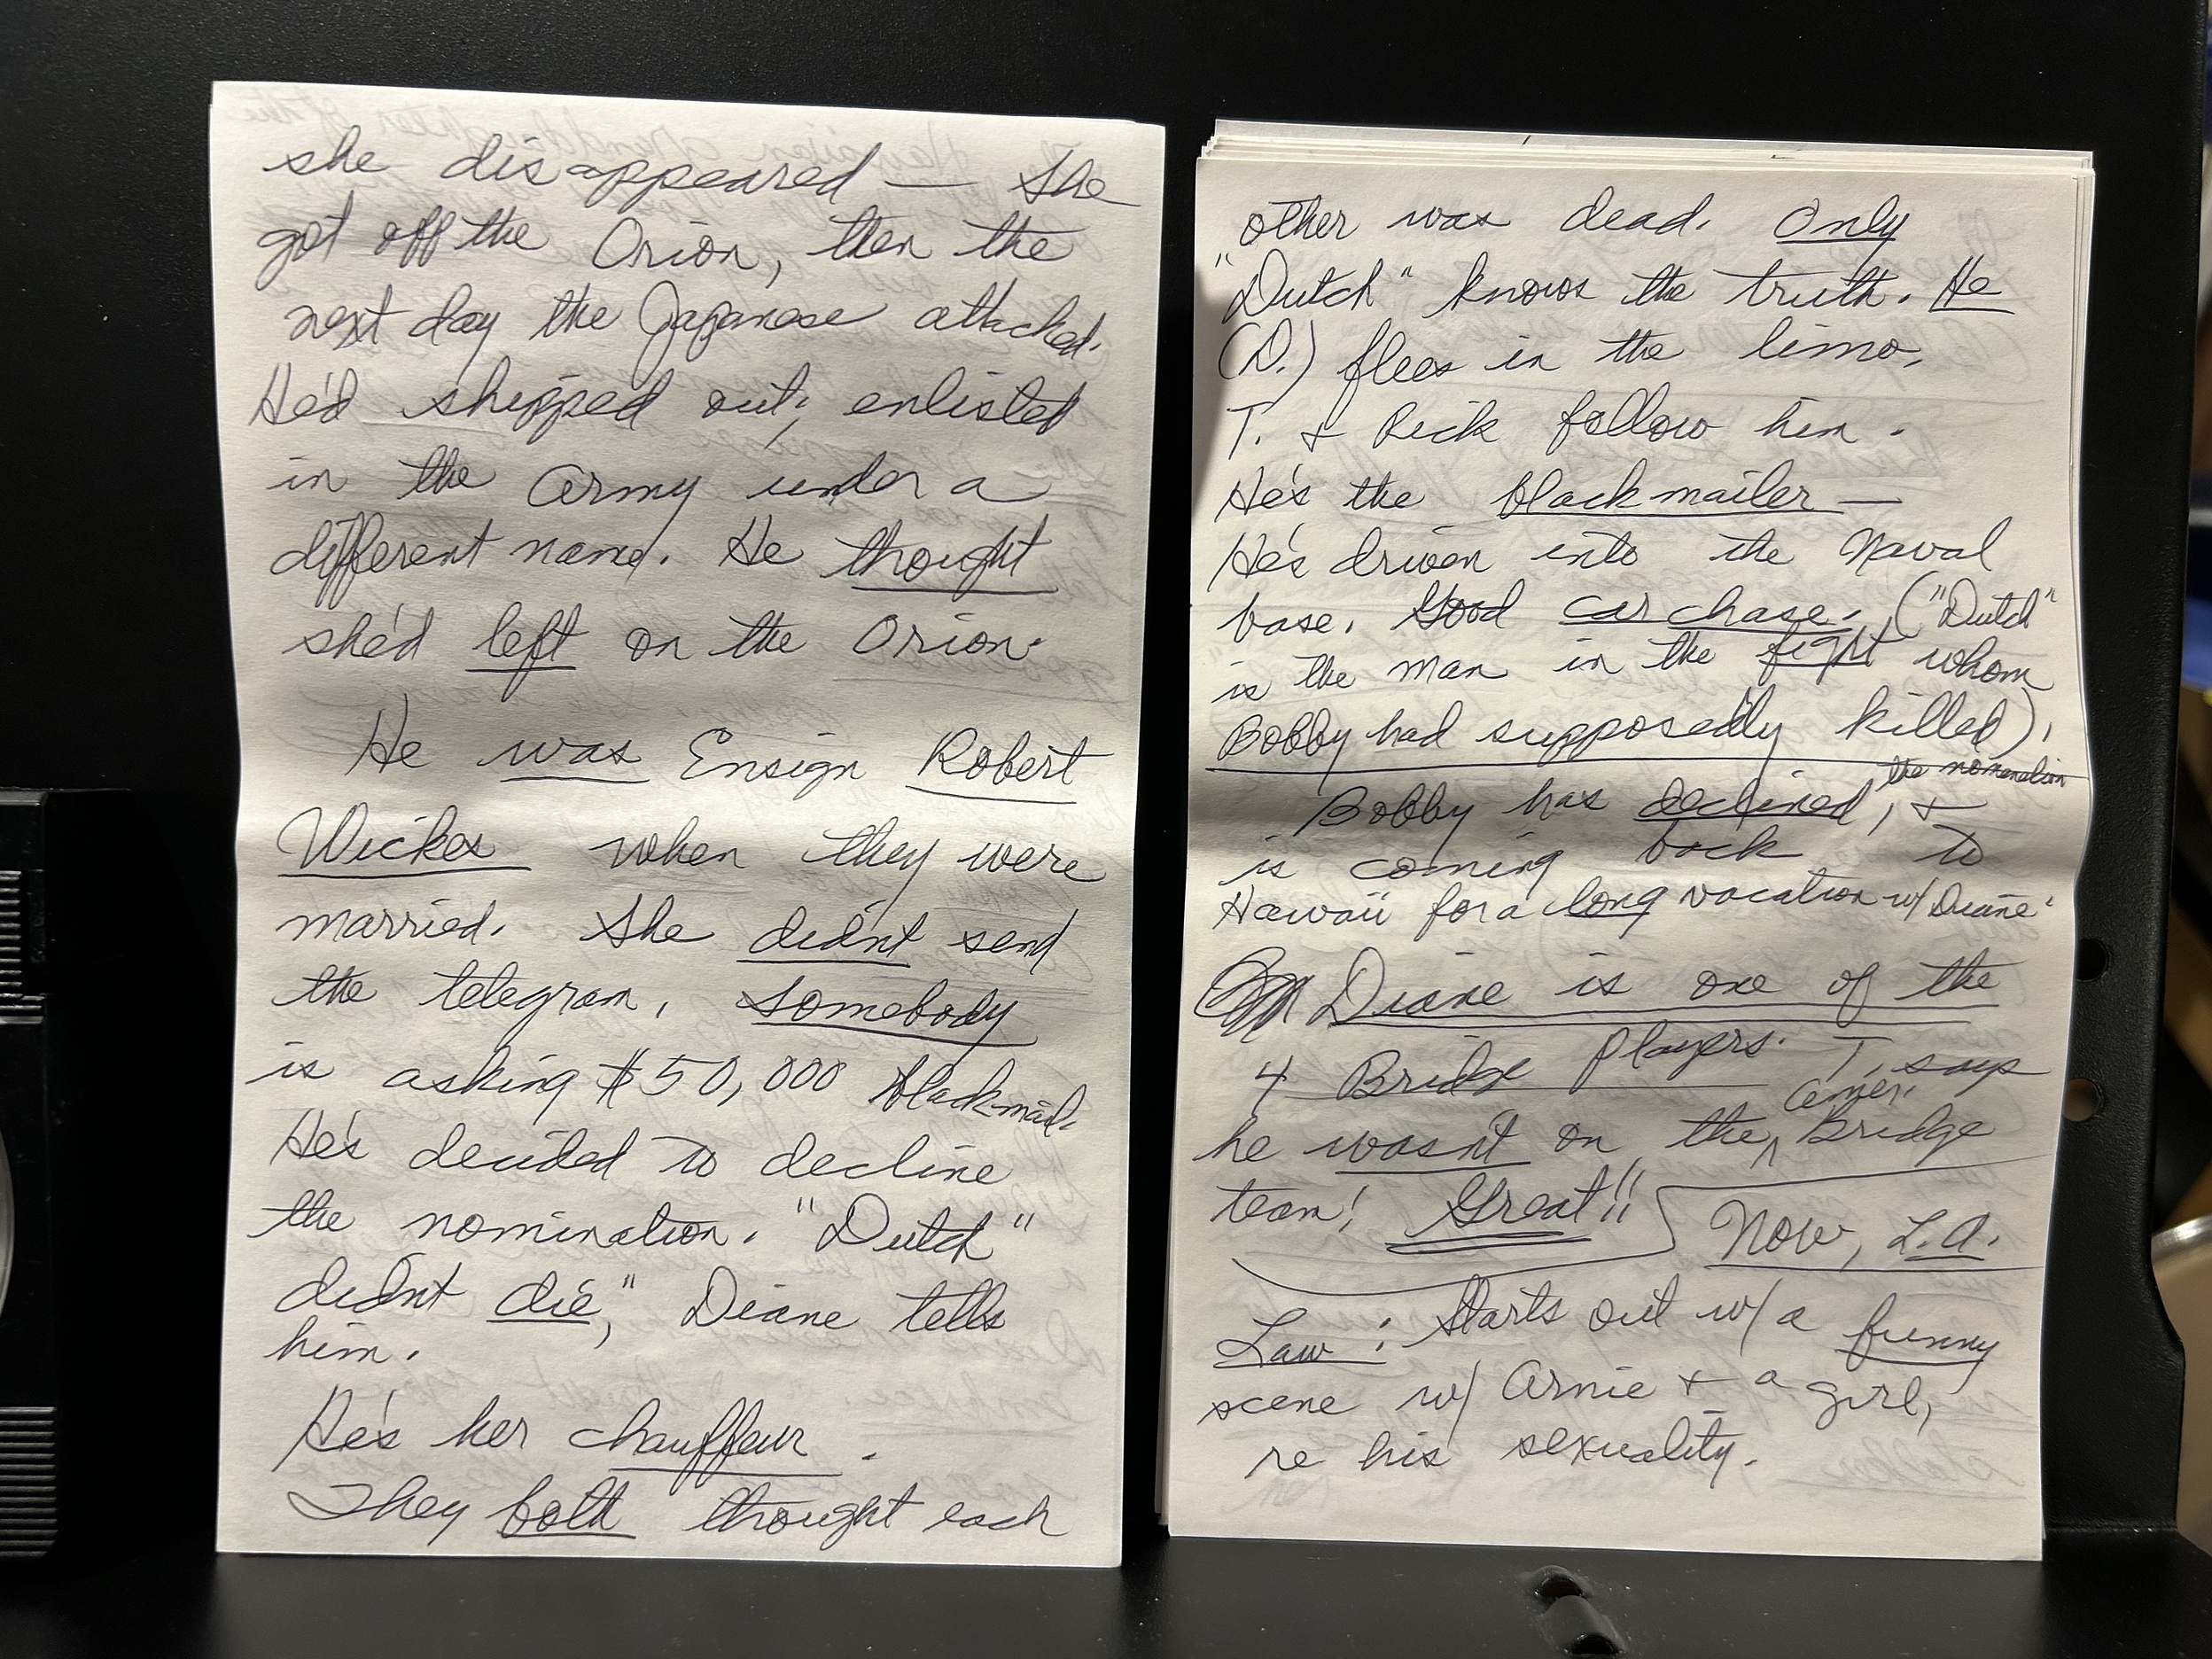 she disappeared — She
got off the Orion, then the
next day the Japanese attacked.
He'd shipped out; enlisted
in the Army under a
different name. He thought
she'd left on the Orion.
He was Ensign Robert
Wickes when they were
married. She didn't send
the telegram. Somebody
is asking $50,000 blackmail.
He's decided to decline
the nomination. "Dutch"
didn't die," Diane tells
him.
He's her chauffeur.
They both thought each
other was dead. Only
"Dutch" knows the truth. He
(D.) flees in the limo,
T. + Rick follow him.
He's the blackmailer —
He's driven into the Naval
base. Good car chase. ("Dutch"
is the man in the fight whom
Bobby had supposedly killed).
the nomination
Bobby has declined, +
is coming back to
Hawaii for a long vacation w/ Diane.
Diane is one of the
4 Bridge players. T. says
Amer.
he wasn't on the Bridge
team! Great!!
Now, L.A.
Law: Starts out w/ a funny
scene w/ Arnie + a girl,
re his sexuality.